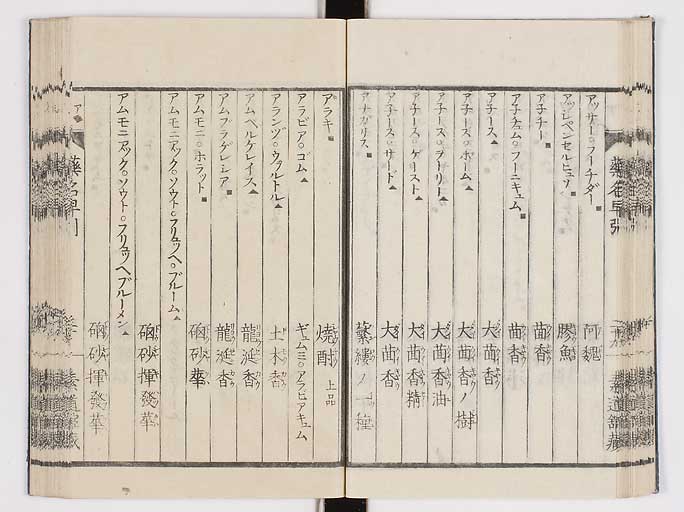 アッサー。フーイチダー■ 阿魏
アッレペンセルヒュソ■ 膠魚
アチチー■ 茴香
アチチュム。フーニキュム■ 茴香
アチース▲ 大茴香
アチース。ホーム▲ 大茴香ノ樹
アチース。ヲーリー▲ 大茴香油
アチース。ゲースト▲ 大茴香精
アチース。サード▲ 大茴香
アナガリス■ 蘩縷ノ一種
アラキ■ 焼酎 上品
アラビア。ゴム▲ ギュムミ。アラビアキュム
アランヅ。ウヲルトル▲ 土木香
アムベルゲレイス▲ 龍涎香
アムブラゲレシア■ 龍涎香
アムモニ。ホラット■ 硇砂華
アムモニアック。ソウト。フリュッヘ。ブルーム▲ 硇砂揮發華
アムモニアック。ソウト。フリュッヘブルーメン▲ 硇砂揮發華
ア
藥名早引